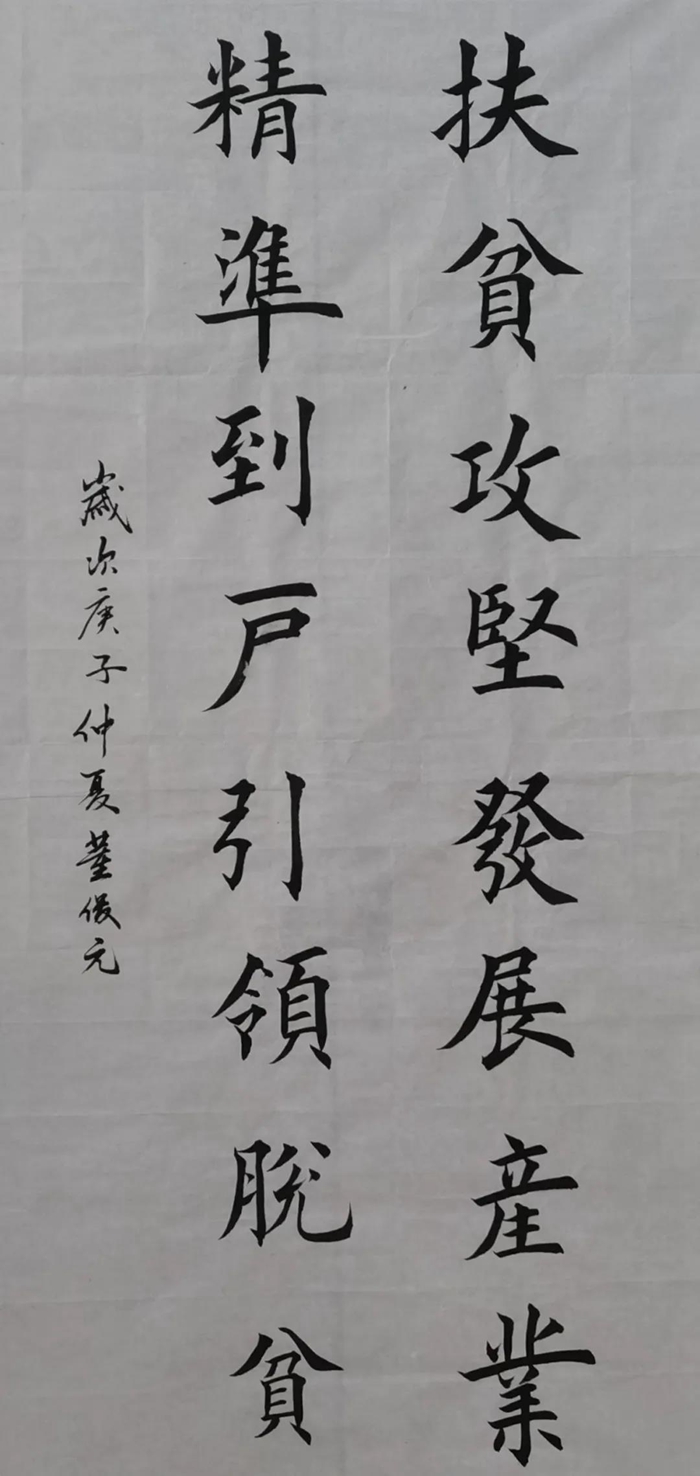 扶貧攻堅發展產業
精準到戶引領脫貧
歲次庚子仲夏董俊元